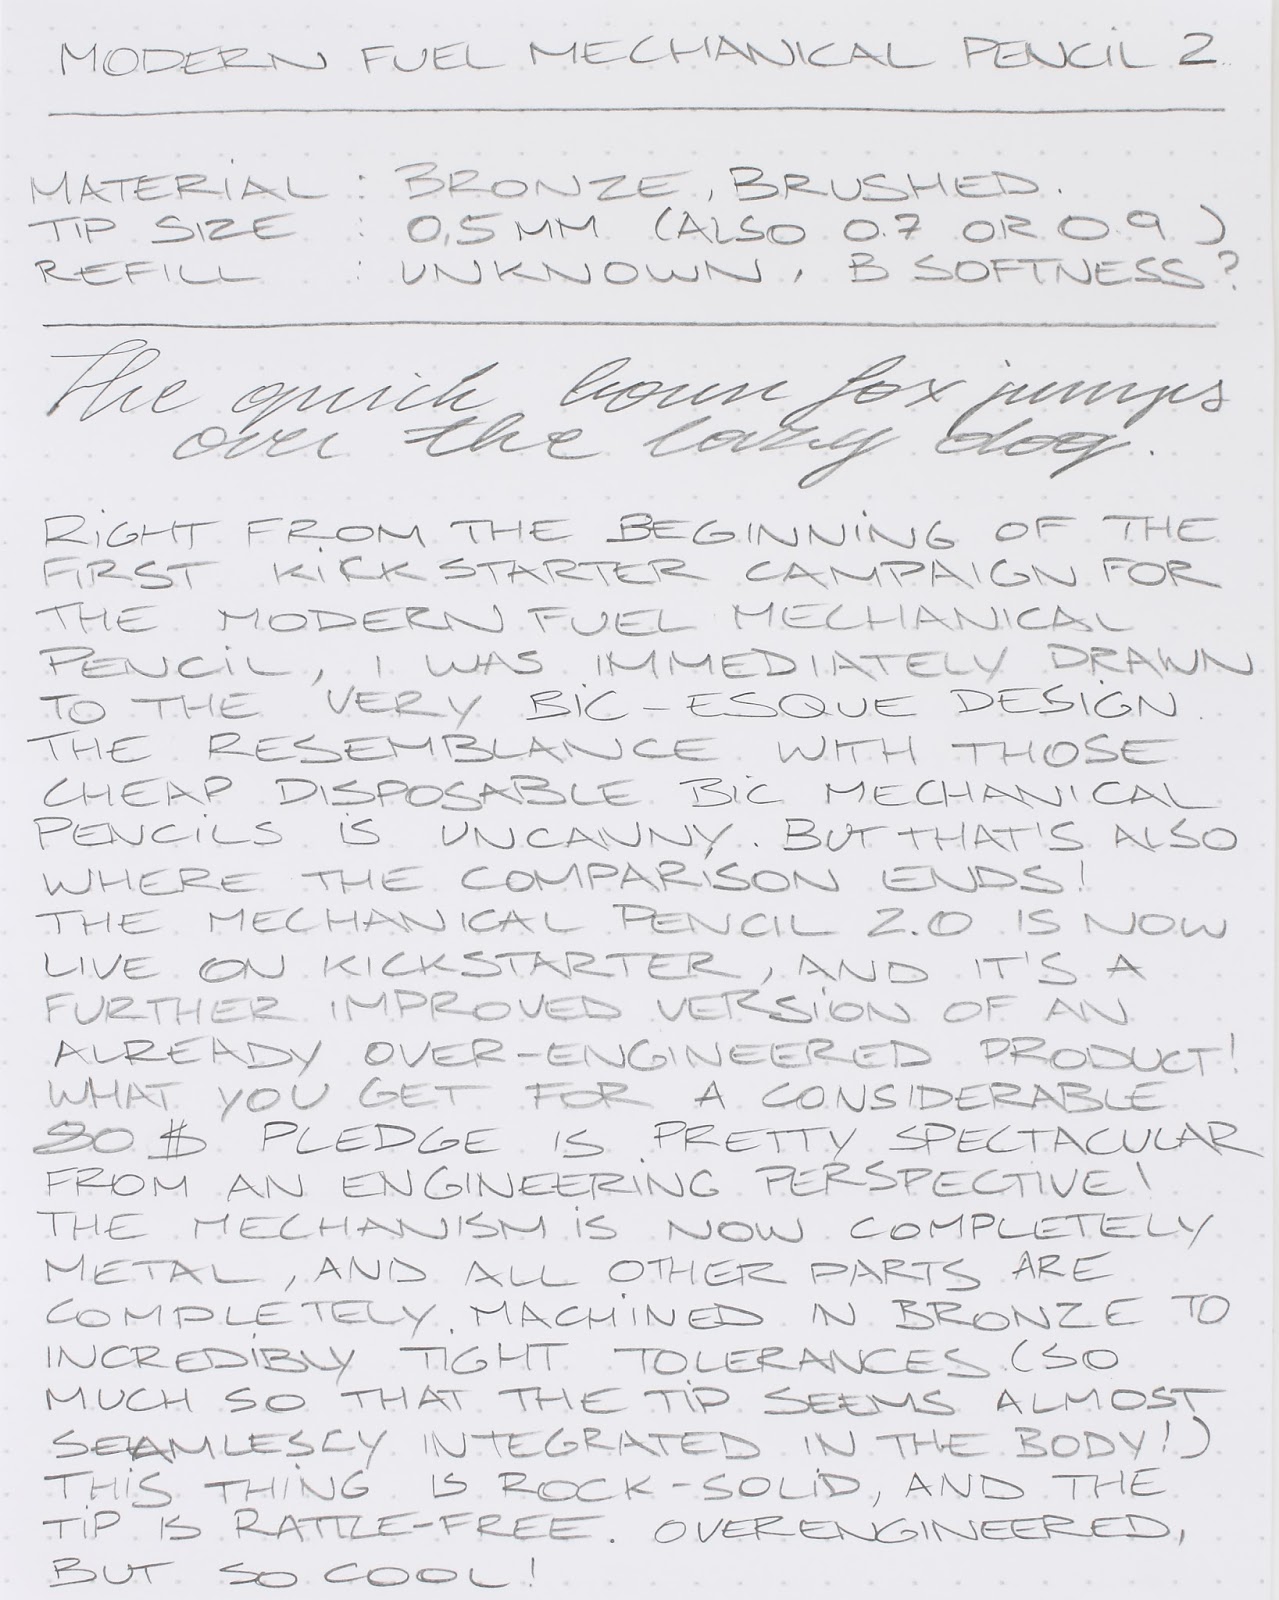 MODERN FUEL MECHANICAL PENCIL 2
MATERIAL : BRONZE, BRUSHED.
TIP SIZE : 0,5 MM (ALSO 0.7 OR 0.9)
REFILL : UNKNOWN, B SOFTNESS?
The quick boun fox jumps
over the lazy dog.
RIGHT FROM THE BEGINNING OF THE
FIRST KICKSTARTER CAMPAIGN FOR
THE MODERN FUEL MECHANICAL
PENCIL, I WAS IMMEDIATELY DRAWN
TO THE VERY BIC-ESQUE DESIGN.
THE RESEMBLANCE WITH THOSE
CHEAP DISPOSABLE BIC MECHANICAL
PENCILS IS UNCANNY. BUT THAT'S ALSO
WHERE THE COMPARISON ENDS!
THE MECHANICAL PENCIL 2.0 IS NOW
LIVE ON KICKSTARTER, AND IT'S A
FURTHER IMPROVED VERSION OF AN
ALREADY OVER-ENGINEERED PRODUCT!
WHAT YOU GET FOR A CONSIDERABLE
$ PLEDGE IS PRETTY SPECTACULAR
FROM AN ENGINEERING PERSPECTIVE!
THE MECHANISM IS NOW COMPLETELY
METAL, AND ALL OTHER PARTS ARE
COMPLETELY MACHINED IN BRONZE TO
INCREDIBLY TIGHT TOLERANCES (SO
MUCH SO THAT THE TIP SEEMS ALMOST
SEAMLESLY INTEGRATED IN THE BODY!)
THIS THING IS ROCK-SOLID, AND THE
TIP IS RATTLE-FREE. OVERENGINEERED,
BUT SO COOL!